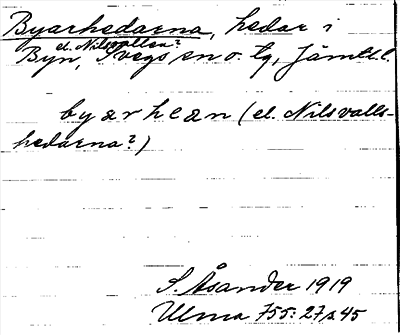 Byarhedarna, hedar i
el. Nilsvallen?
Byn, Svegs sn o. tg, Jämtl. l.
byarhean (el. Nilsvalls-
hedarna?)
S. Åsander 1919
Ulma 755: 27 s. 45